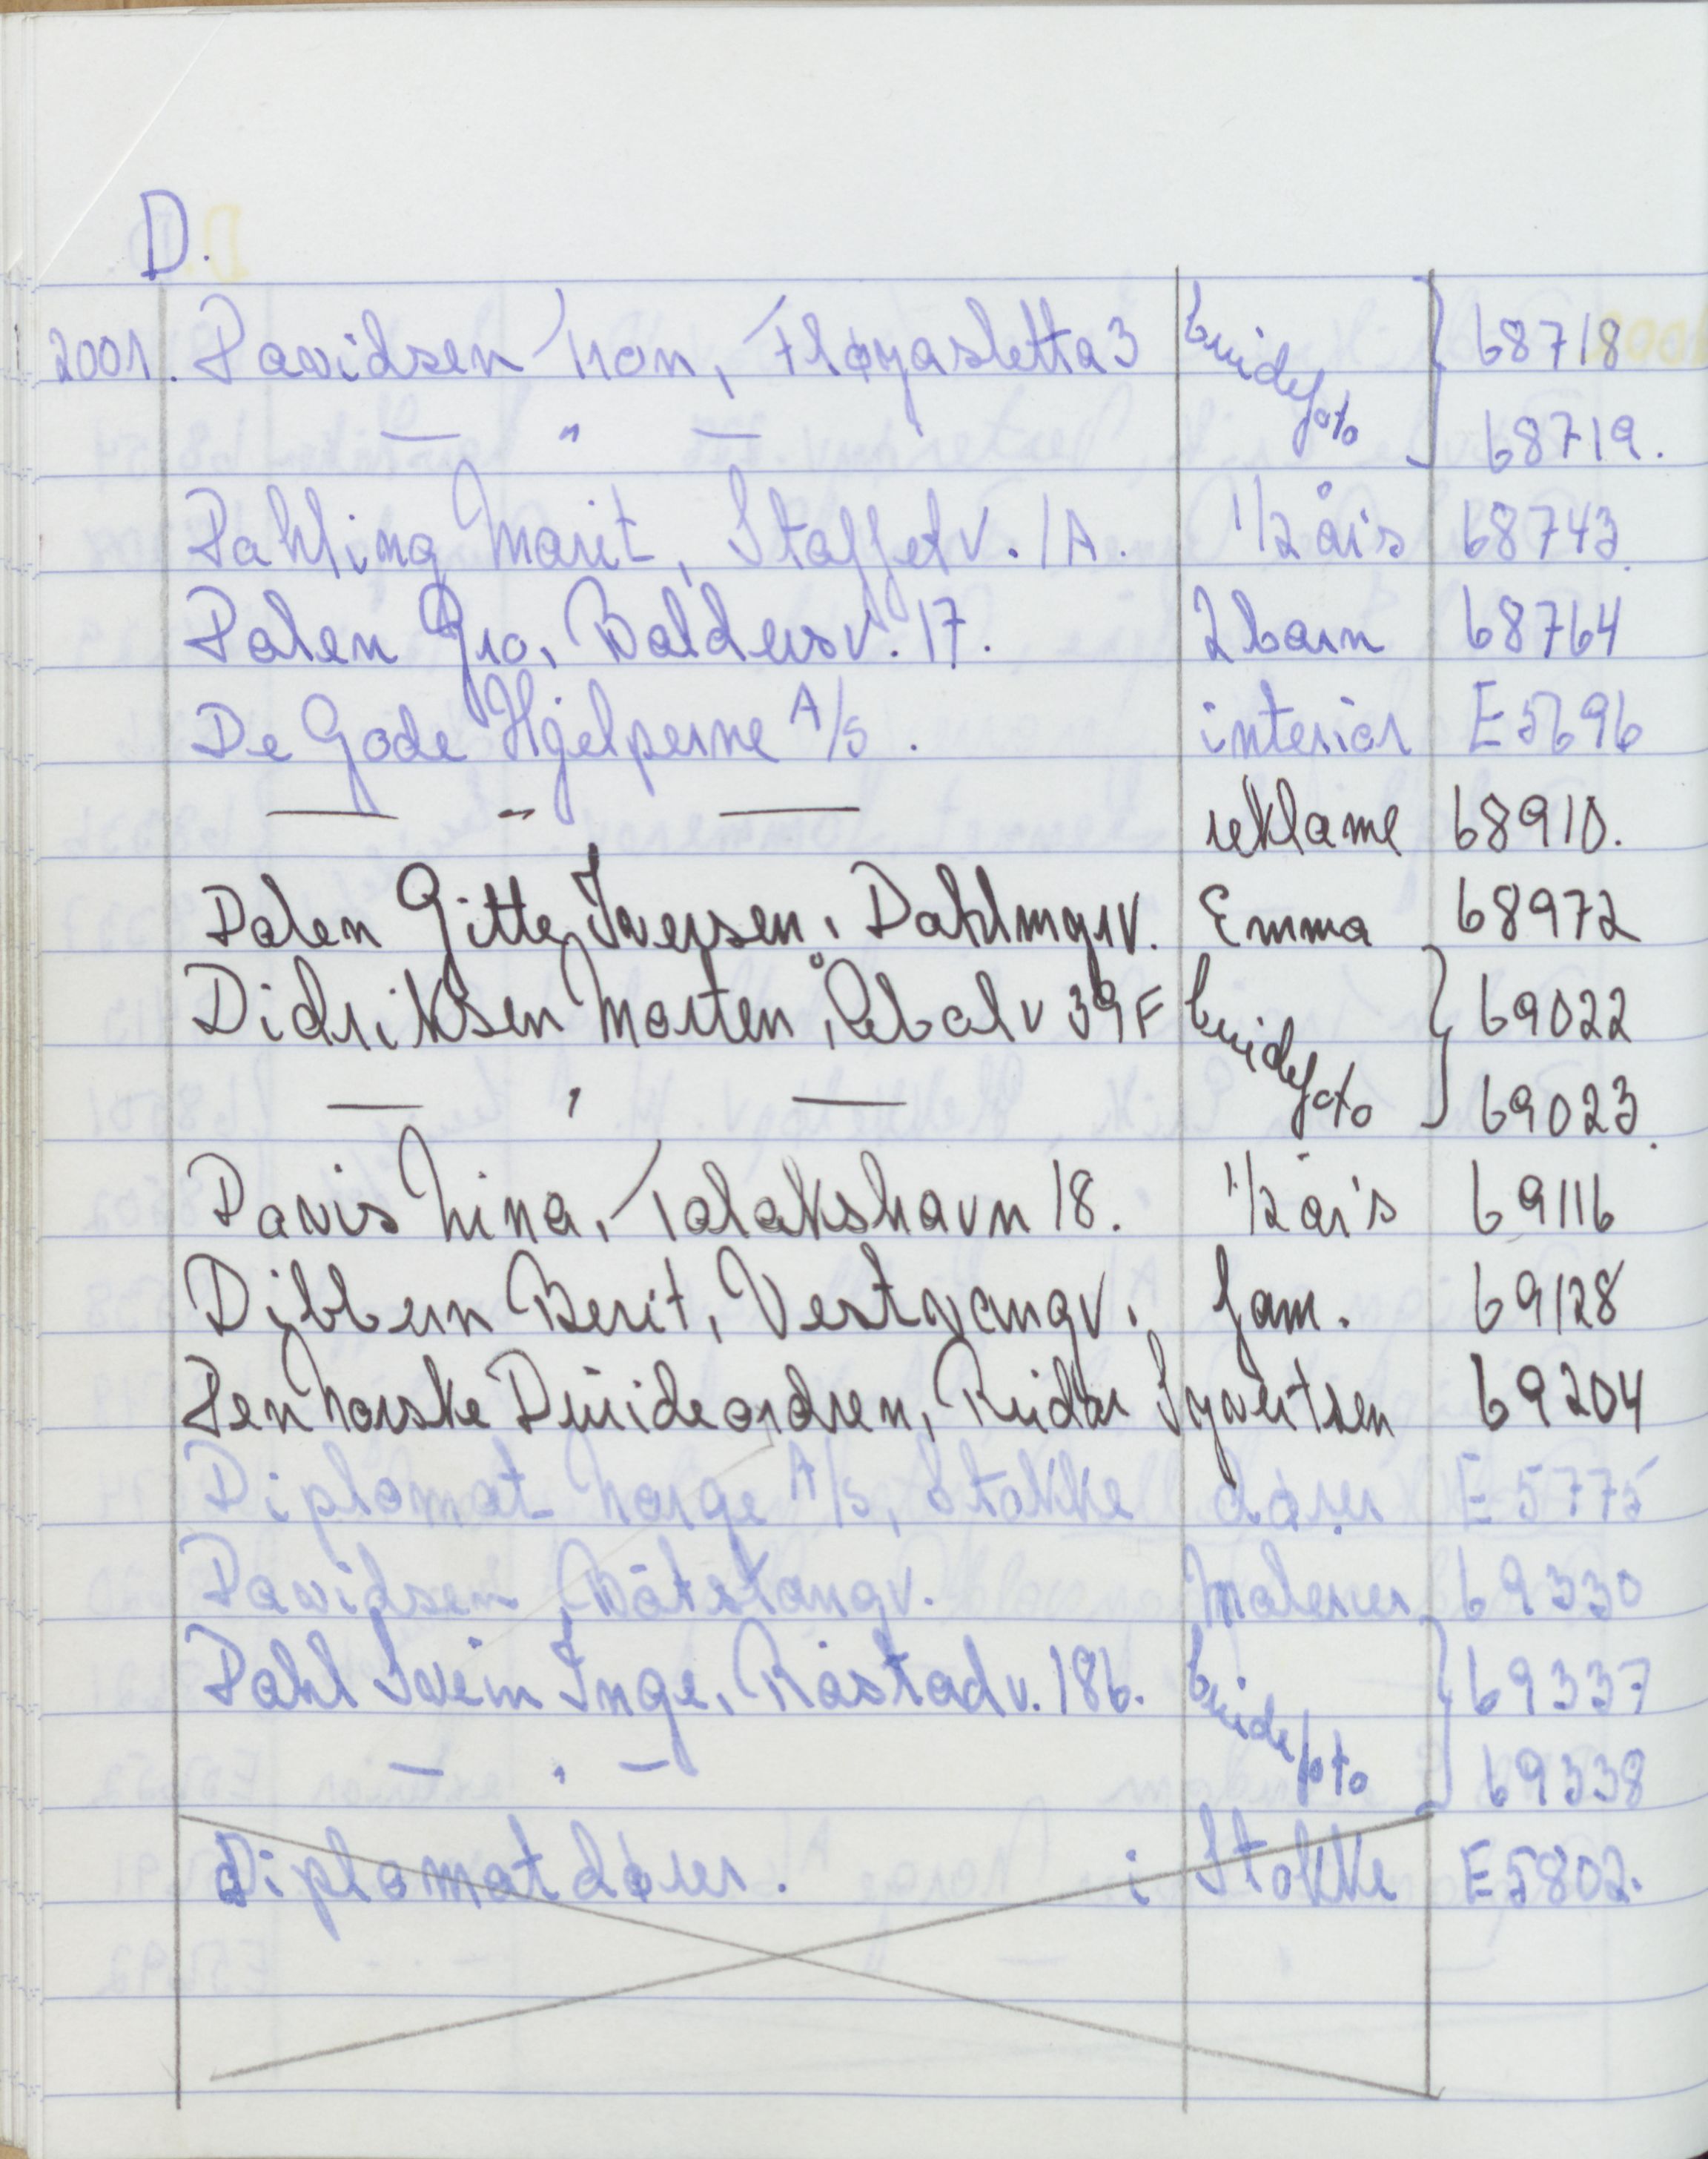 D.
2001. Davidsen Tron, Fløyasletta 3 brudefoto 68718
— " — 68719.
Dahling Marit, Staffetv. 1A. 1/2 års 68743.
Dalen Gro, Baldersv. 17. 2 barn 68764
De Gode Hjelperne A/S. interiør E5696
— " — reklame 68910.
Dalen Gitte Iversen, Dahlmgrv. Emma 68972
Didriksen Morten, Råbølv 39F brudefoto 69022
— " — 69023.
Davis Nina, Tolakshavn 18. 1/2 års 69116
Dybbern Berit, Vestvangv. fam. 69128
Den Norske Druideordren, Reidar Syvertsen 69204
Diplomat Norge A/S, Stokke dører E5775
Davidsen, Båtstangv. malerier 69330
Dahl Svein Inge, Råstadv. 186. brudefoto 69337
— " — 69338
Diplomatdører. i Stokke E5802.